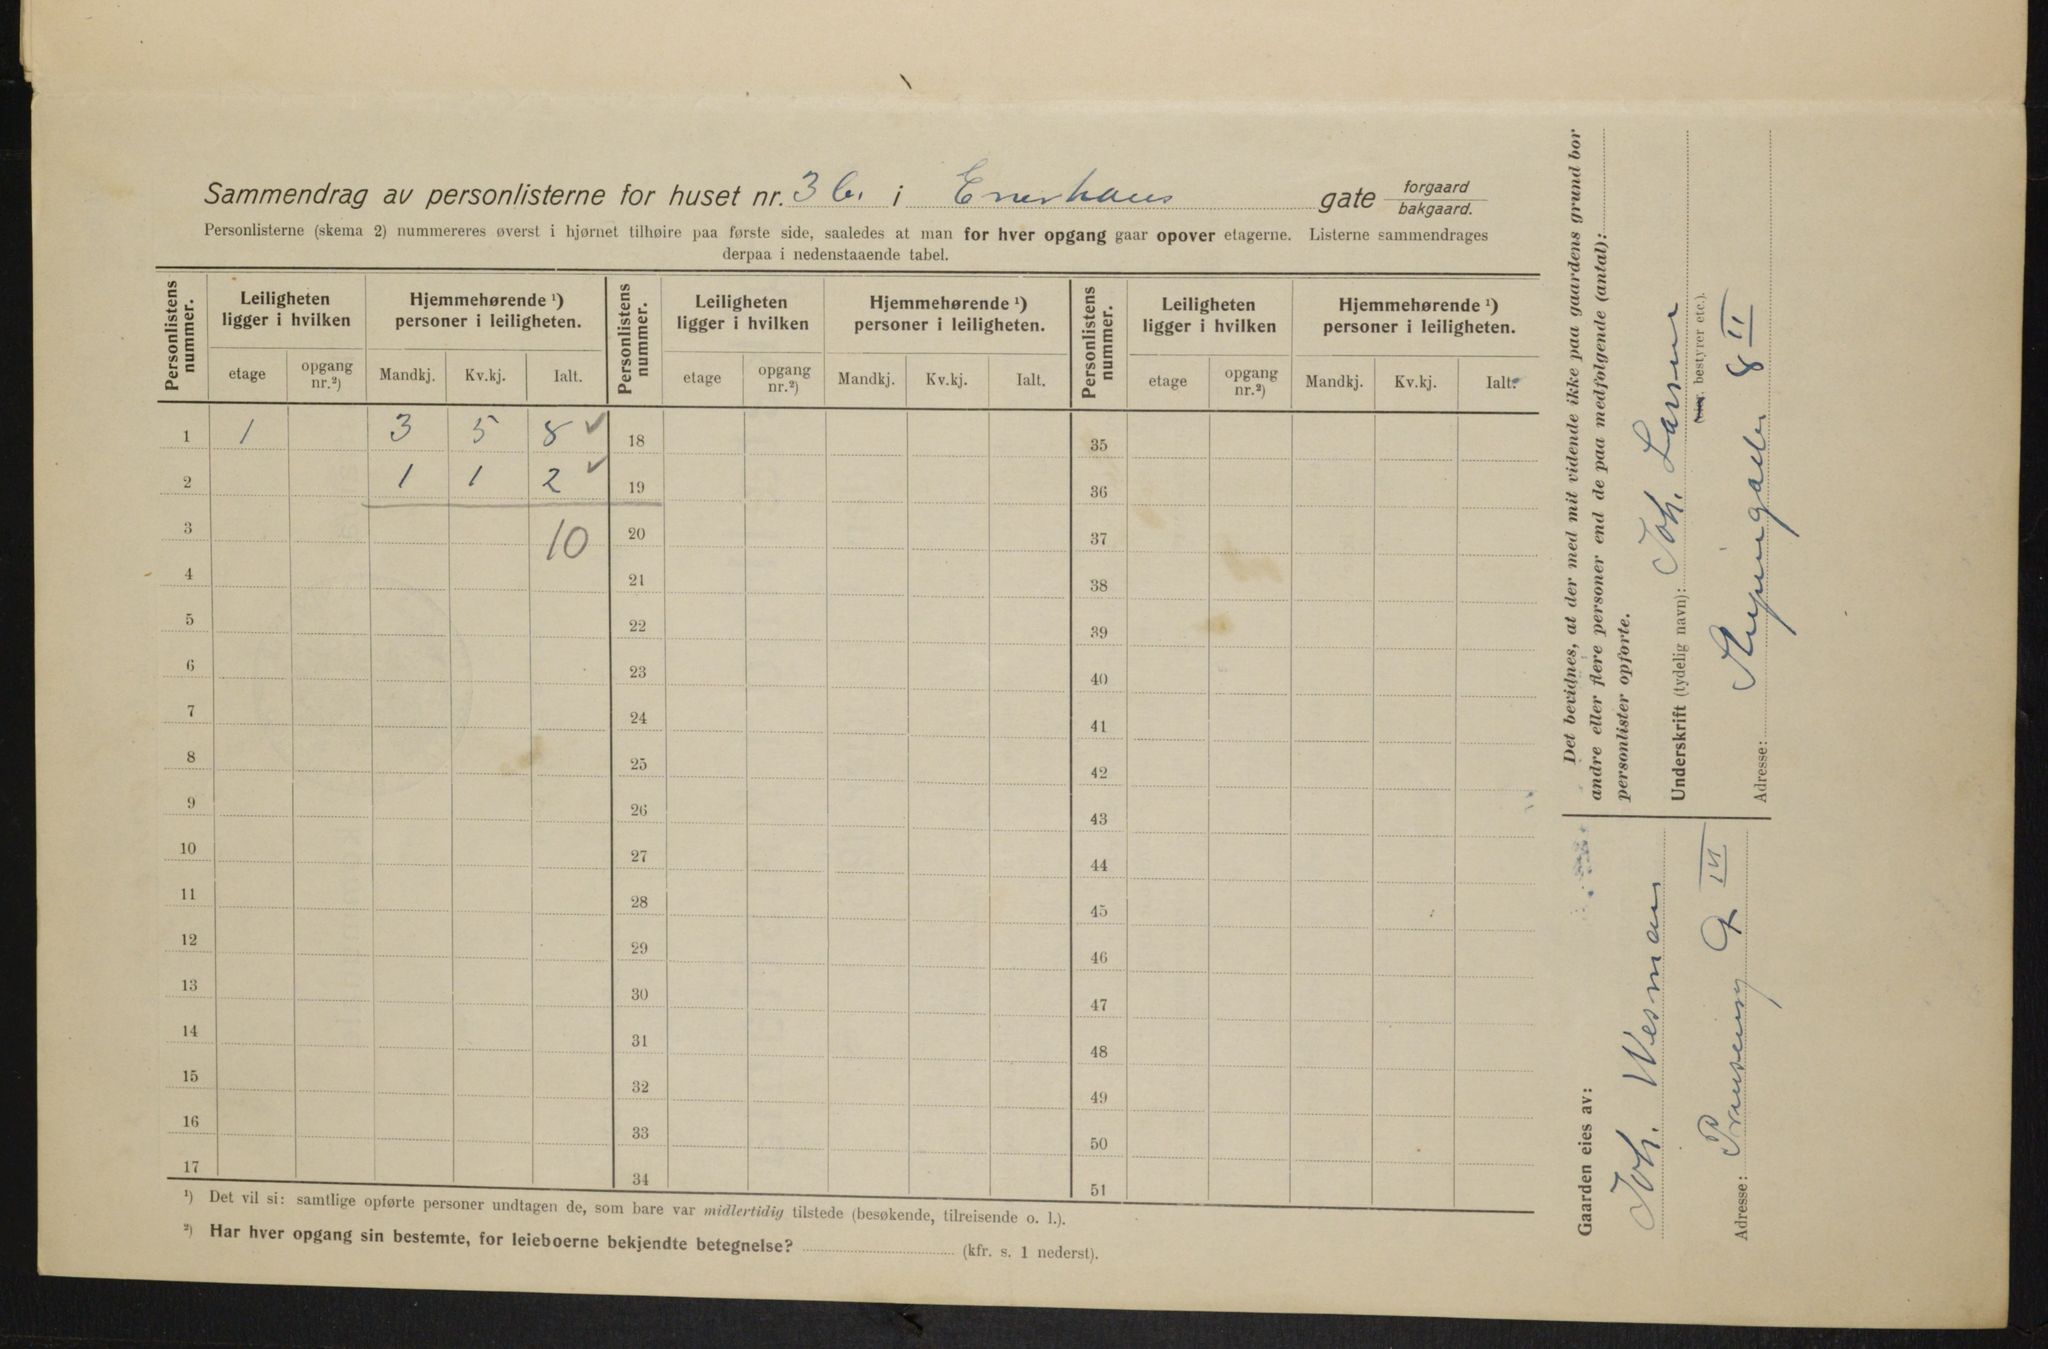 Sammendrag av personlisterne for huset nr. 3 b. i Enerhaus gate forgaard
bakgaard.
Personlisterne (skema 2) nummereres øverst i hjørnet tilhøire paa første side, saaledes at man for hver opgang gaar opover etagerne. Listerne sammendrages
derpaa i nedenstaaende tabel.
Personlistens nummer. Leiligheten ligger i hvilken Hjemmehørende ¹) personer i leiligheten. Personlistens nummer. Leiligheten ligger i hvilken Hjemmehørende ¹) personer i leiligheten. Personlistens nummer. Leiligheten ligger i hvilken Hjemmehørende ¹) personer i leiligheten.
etage opgang nr.²) Mandkj. Kv.kj. Ialt. etage opgang nr.²) Mandkj. Kv.kj. Ialt. etage opgang nr.²) Mandkj. Kv.kj. Ialt.
1 1 3 5 8 ✓ 18 35
2 1 1 2 ✓ 19 36
3 10 20 37
4 21 38
5 22 39
6 23 40
7 24 41
8 25 42
9 26 43
10 27 44
11 28 45
12 29 46
13 30 47
14 31 48
15 32 49
16 33 50
17 34 51
¹) Det vil si: samtlige opførte personer undtagen de, som bare var midlertidig tilstede (besøkende, tilreisende o. l.).
²) Har hver opgang sin bestemte, for leieboerne bekjendte betegnelse? (kfr. s. 1 nederst).
Det bevidnes, at der med mit vidende ikke paa gaardens grund bor
andre eller flere personer end de paa medfølgende (antal):
personlister opførte.
Underskrift (tydelig navn): Joh. Larsen
bestyrer etc.).
Adresse: 8 II
Gaarden eies av:
Joh. Wesman
Adresse: 9 III